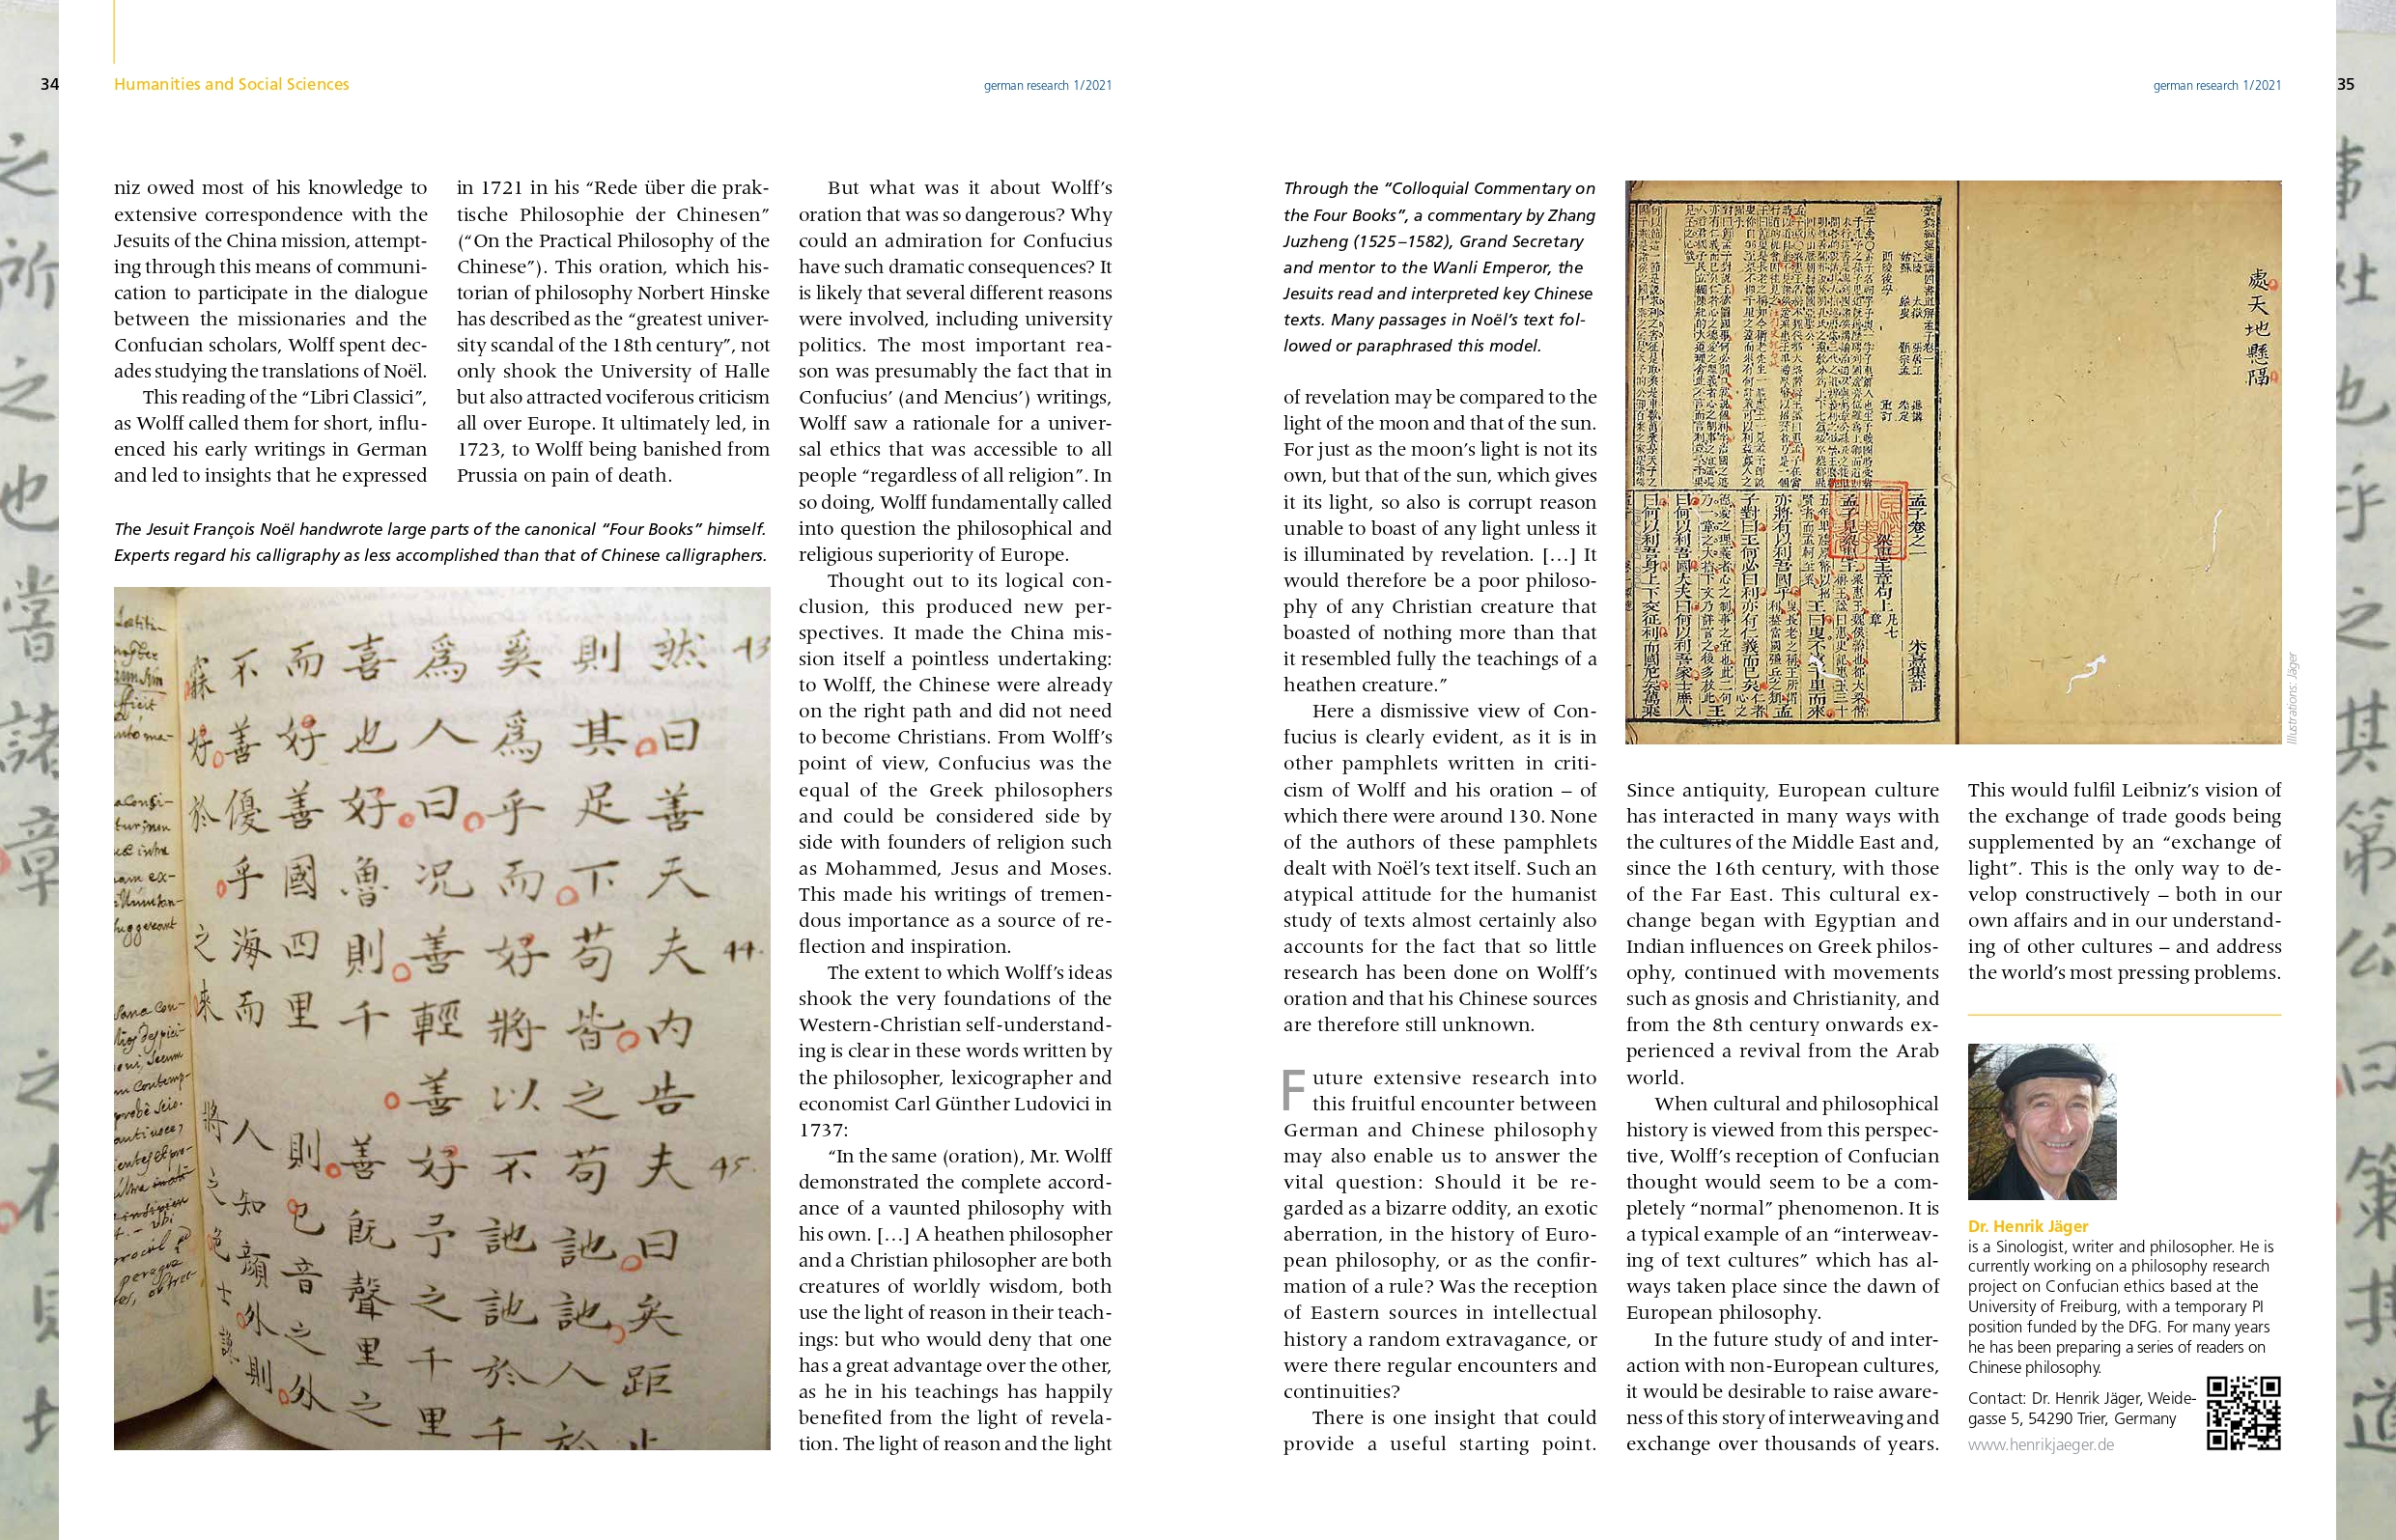 34
Humanities and Social Sciences
german research 1/2021
niz owed most of his knowledge to
extensive correspondence with the
Jesuits of the China mission, attempt-
ing through this means of communi-
cation to participate in the dialogue
between the missionaries and the
Confucian scholars, Wolff spent dec-
ades studying the translations of Noël.
This reading of the “Libri Classici”,
as Wolff called them for short, influ-
enced his early writings in German
and led to insights that he expressed
in 1721 in his “Rede über die prak-
tische Philosophie der Chinesen”
(“On the Practical Philosophy of the
Chinese”). This oration, which his-
torian of philosophy Norbert Hinske
has described as the “greatest univer-
sity scandal of the 18th century”, not
only shook the University of Halle
but also attracted vociferous criticism
all over Europe. It ultimately led, in
1723, to Wolff being banished from
Prussia on pain of death.
The Jesuit François Noël handwrote large parts of the canonical “Four Books” himself.
Experts regard his calligraphy as less accomplished than that of Chinese calligraphers.
43
曰善天
44.
夫内告
45.
夫曰矣距止
則其足下苟皆之苟訑訑人於
奚爲乎而好將以不訑訑於千
爲人曰况善輕善好予之千里
喜也好魯則千善既聲里之
而好善國四里則已音之外
不善優乎海而人知顔外則
But what was it about Wolff’s
oration that was so dangerous? Why
could an admiration for Confucius
have such dramatic consequences? It
is likely that several different reasons
were involved, including university
politics. The most important rea-
son was presumably the fact that in
Confucius’ (and Mencius’) writings,
Wolff saw a rationale for a univer-
sal ethics that was accessible to all
people “regardless of all religion”. In
so doing, Wolff fundamentally called
into question the philosophical and
religious superiority of Europe.
Thought out to its logical con-
clusion, this produced new per-
spectives. It made the China mis-
sion itself a pointless undertaking:
to Wolff, the Chinese were already
on the right path and did not need
to become Christians. From Wolff’s
point of view, Confucius was the
equal of the Greek philosophers
and could be considered side by
side with founders of religion such
as Mohammed, Jesus and Moses.
This made his writings of tremen-
dous importance as a source of re-
flection and inspiration.
The extent to which Wolff’s ideas
shook the very foundations of the
Western-Christian self-understand-
ing is clear in these words written by
the philosopher, lexicographer and
economist Carl Günther Ludovici in
1737:
“In the same (oration), Mr. Wolff
demonstrated the complete accord-
ance of a vaunted philosophy with
his own. […] A heathen philosopher
and a Christian philosopher are both
creatures of worldly wisdom, both
use the light of reason in their teach-
ings: but who would deny that one
has a great advantage over the other,
as he in his teachings has happily
benefited from the light of revela-
tion. The light of reason and the light
german research 1/2021
35
Through the “Colloquial Commentary on
the Four Books”, a commentary by Zhang
Juzheng (1525–1582), Grand Secretary
and mentor to the Wanli Emperor, the
Jesuits read and interpreted key Chinese
texts. Many passages in Noël’s text fol-
lowed or paraphrased this model.
of revelation may be compared to the
light of the moon and that of the sun.
For just as the moon’s light is not its
own, but that of the sun, which gives
it its light, so also is corrupt reason
unable to boast of any light unless it
is illuminated by revelation. […] It
would therefore be a poor philoso-
phy of any Christian creature that
boasted of nothing more than that
it resembled fully the teachings of a
heathen creature.”
Here a dismissive view of Con-
fucius is clearly evident, as it is in
other pamphlets written in criti-
cism of Wolff and his oration – of
which there were around 130. None
of the authors of these pamphlets
dealt with Noël’s text itself. Such an
atypical attitude for the humanist
study of texts almost certainly also
accounts for the fact that so little
research has been done on Wolff’s
oration and that his Chinese sources
are therefore still unknown.
Future extensive research into
this fruitful encounter between
German and Chinese philosophy
may also enable us to answer the
vital question: Should it be re-
garded as a bizarre oddity, an exotic
aberration, in the history of Euro-
pean philosophy, or as the confir-
mation of a rule? Was the reception
of Eastern sources in intellectual
history a random extravagance, or
were there regular encounters and
continuities?
There is one insight that could
provide a useful starting point.
處天地懸隔
孟子卷之一
朱熹集註
Illustrations: Jäger
Since antiquity, European culture
has interacted in many ways with
the cultures of the Middle East and,
since the 16th century, with those
of the Far East. This cultural ex-
change began with Egyptian and
Indian influences on Greek philos-
ophy, continued with movements
such as gnosis and Christianity, and
from the 8th century onwards ex-
perienced a revival from the Arab
world.
When cultural and philosophical
history is viewed from this perspec-
tive, Wolff’s reception of Confucian
thought would seem to be a com-
pletely “normal” phenomenon. It is
a typical example of an “interweav-
ing of text cultures” which has al-
ways taken place since the dawn of
European philosophy.
In the future study of and inter-
action with non-European cultures,
it would be desirable to raise aware-
ness of this story of interweaving and
exchange over thousands of years.
This would fulfil Leibniz’s vision of
the exchange of trade goods being
supplemented by an “exchange of
light”. This is the only way to de-
velop constructively – both in our
own affairs and in our understand-
ing of other cultures – and address
the world’s most pressing problems.
Dr. Henrik Jäger
is a Sinologist, writer and philosopher. He is
currently working on a philosophy research
project on Confucian ethics based at the
University of Freiburg, with a temporary PI
position funded by the DFG. For many years
he has been preparing a series of readers on
Chinese philosophy.
Contact: Dr. Henrik Jäger, Weide-
gasse 5, 54290 Trier, Germany
www.henrikjaeger.de